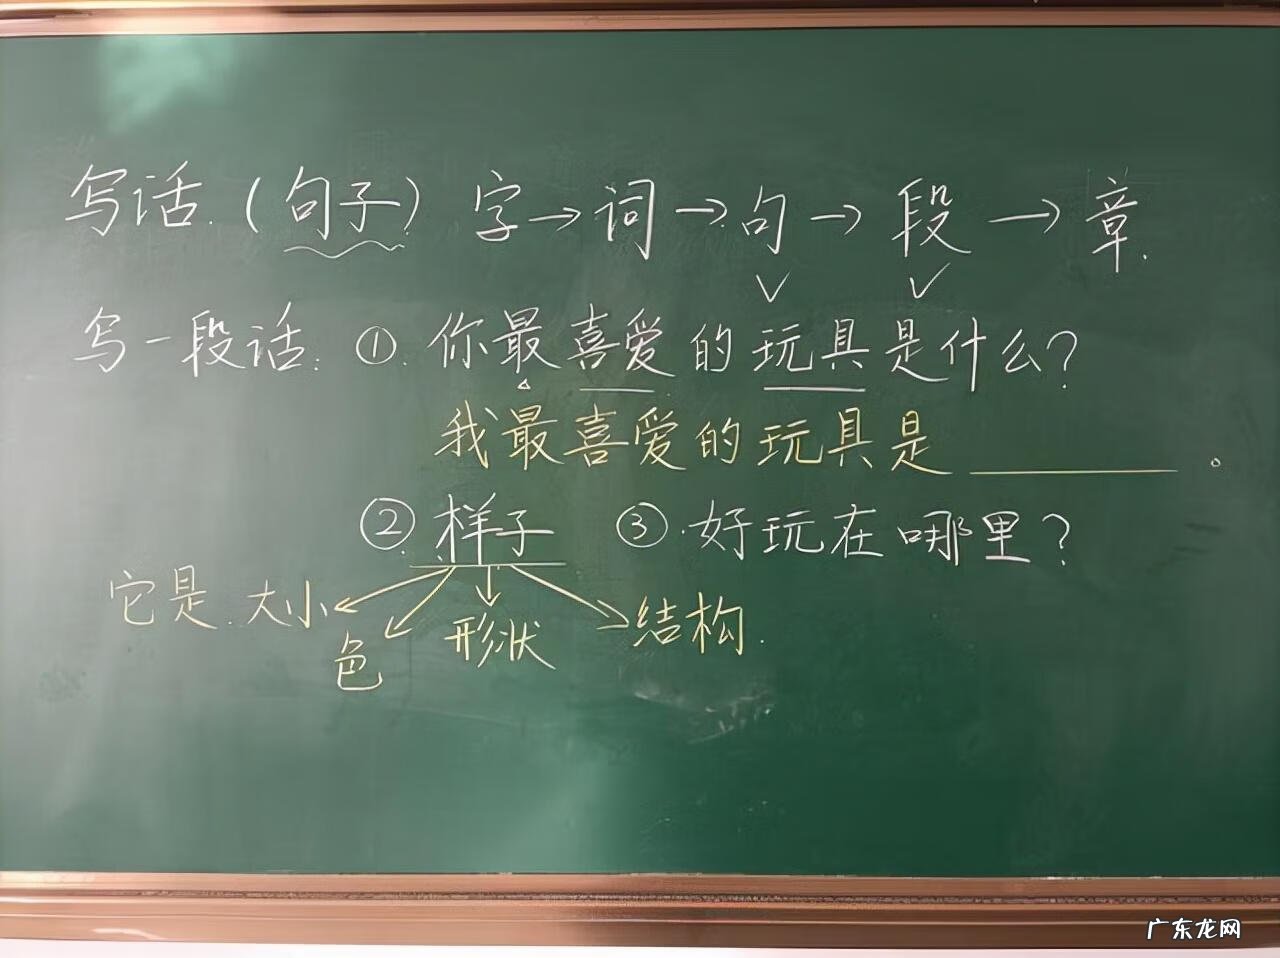 写话.(句子) 字→词→句→段→章.
写一段话: ①. 你最喜爱的玩具是什么?
我最喜爱的玩具是________。
②. 样子 ③.好玩在哪里?
它是.大小 色 形状 结构.
广东龙网